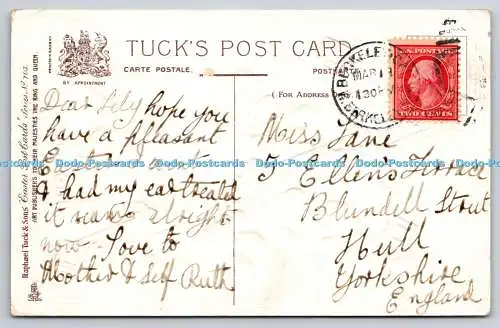 TUCK'S POST CARD
CARTE POSTALE
BY APPOINTMENT
(For Address
Raphael Tuck & Sons
ART PUBLISHERS TO THEIR MAJESTIES THE KING AND QUEEN
BERKELEY
MAR
430P
U.S. POSTAGE
TWO CENTS
Dear Lily hope you
have a pleasant
Easter
I had my ear treated
it seems alright
now - Love to
Mother & Self Ruth
Miss Jane
5 Ellen's Terrace
Blundell Street
Hull
Yorkshire
England
Dodo-Postcards Dodo-Postcards Dodo-Postcards Dodo-Postcards Dodo-Postcards